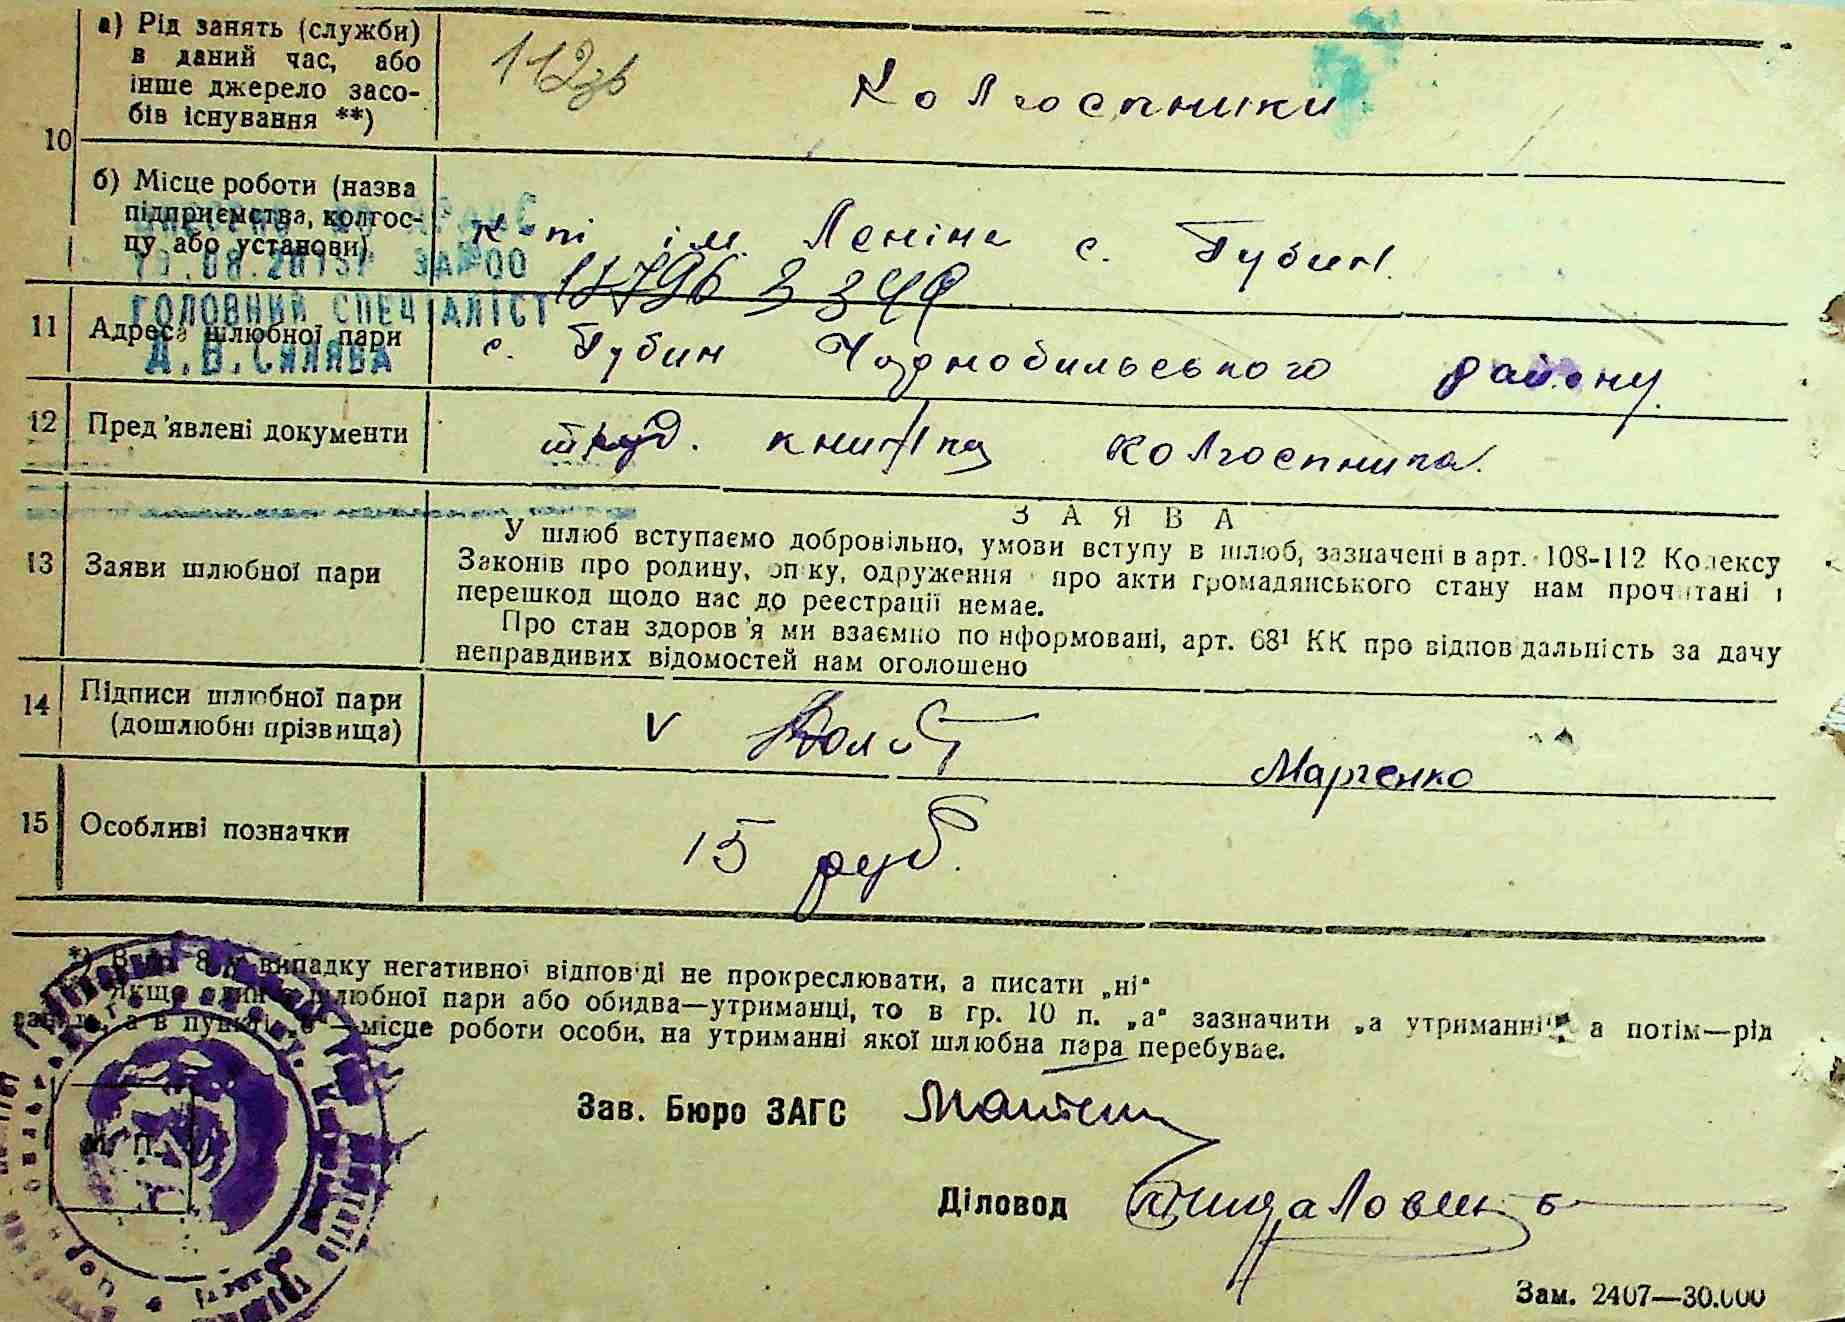 а) Рід занять (служби)
в даний час, або
інше джерело засо-
бів існування **)
112зв
Колгоспники
10
б) Місце роботи (назва
підприємства, колгос-
пу або установи)
к-пі ім. Леніна с. Губин.
11
Адреса шлюбної пари
ГОЛОВНИЙ СПЕЦІАЛІСТ
с. Губин Чорнобильського району.
12
Пред'явлені документи
труд. книжка колгоспника.
13
Заяви шлюбної пари
ЗАЯВА
У шлюб вступаємо добровільно, умови вступу в шлюб, зазначені в арт. 108-112 Кодексу
Законів про родину, опіку, одруження про акти громадянського стану нам прочитані і
перешкод щодо нас до реєстрації немає.
Про стан здоров'я ми взаємно поінформовані, арт. 68¹ КК про відповідальність за дачу
неправдивих відомостей нам оголошено
14
Підписи шлюбної пари
(дошлюбні прізвища)
V
Марченко
15
Особливі позначки
15 руб.
випадку негативної відповіді не прокреслювати, а писати „ні"
Якщо один з шлюбної пари або обидва—утриманці, то в гр. 10 п. „а" зазначити „а утриманні" а потім—рід
а в пункті —місце роботи особи, на утриманні якої шлюбна пара перебуває.
М. П.
Зав. Бюро ЗАГС
Діловод
Зам. 2407—30.000